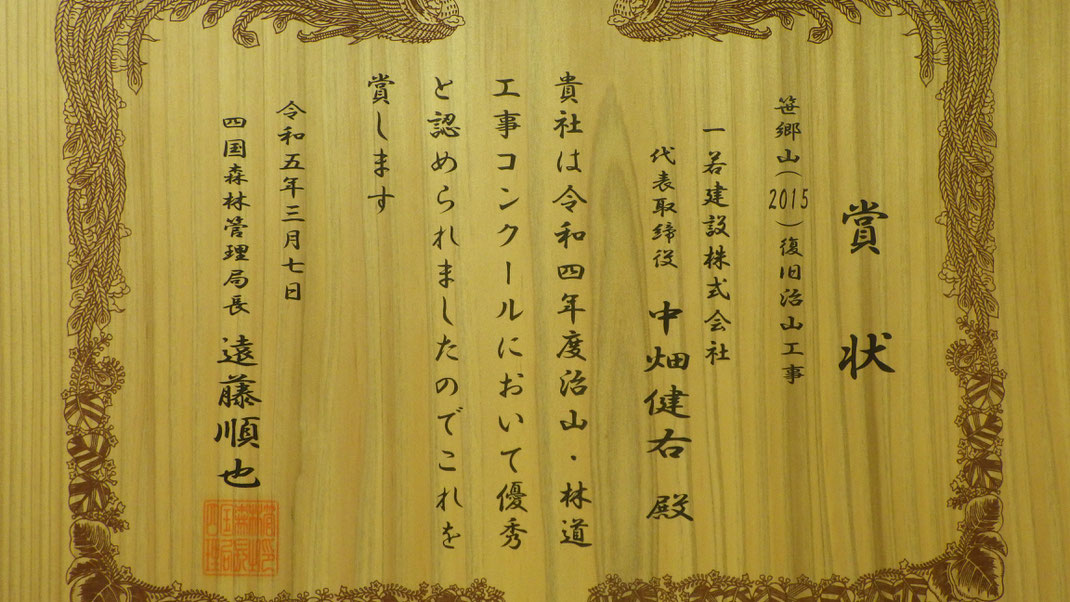 賞状
笹郷山(2015)復旧治山工事
一若建設株式会社
代表取締役 中畑健右 殿
貴社は令和四年度治山・林道
工事コンクールにおいて優秀
と認められましたのでこれを
賞します
令和五年三月七日
四国森林管理局長 遠藤順也